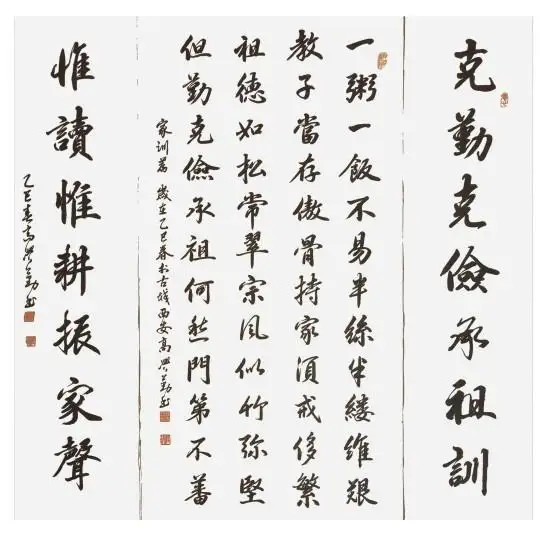 克勤克儉承祖訓
一粥一飯不易半絲半縷維艱
教子當存傲骨持家須戒侈繁
祖德如松常翠宗風似竹弥堅
但勤克儉承祖何愁門第不蕃
家訓篇 歲在乙巳春於古城西安高興勤書
惟讀惟耕振家聲
乙巳春高興勤書